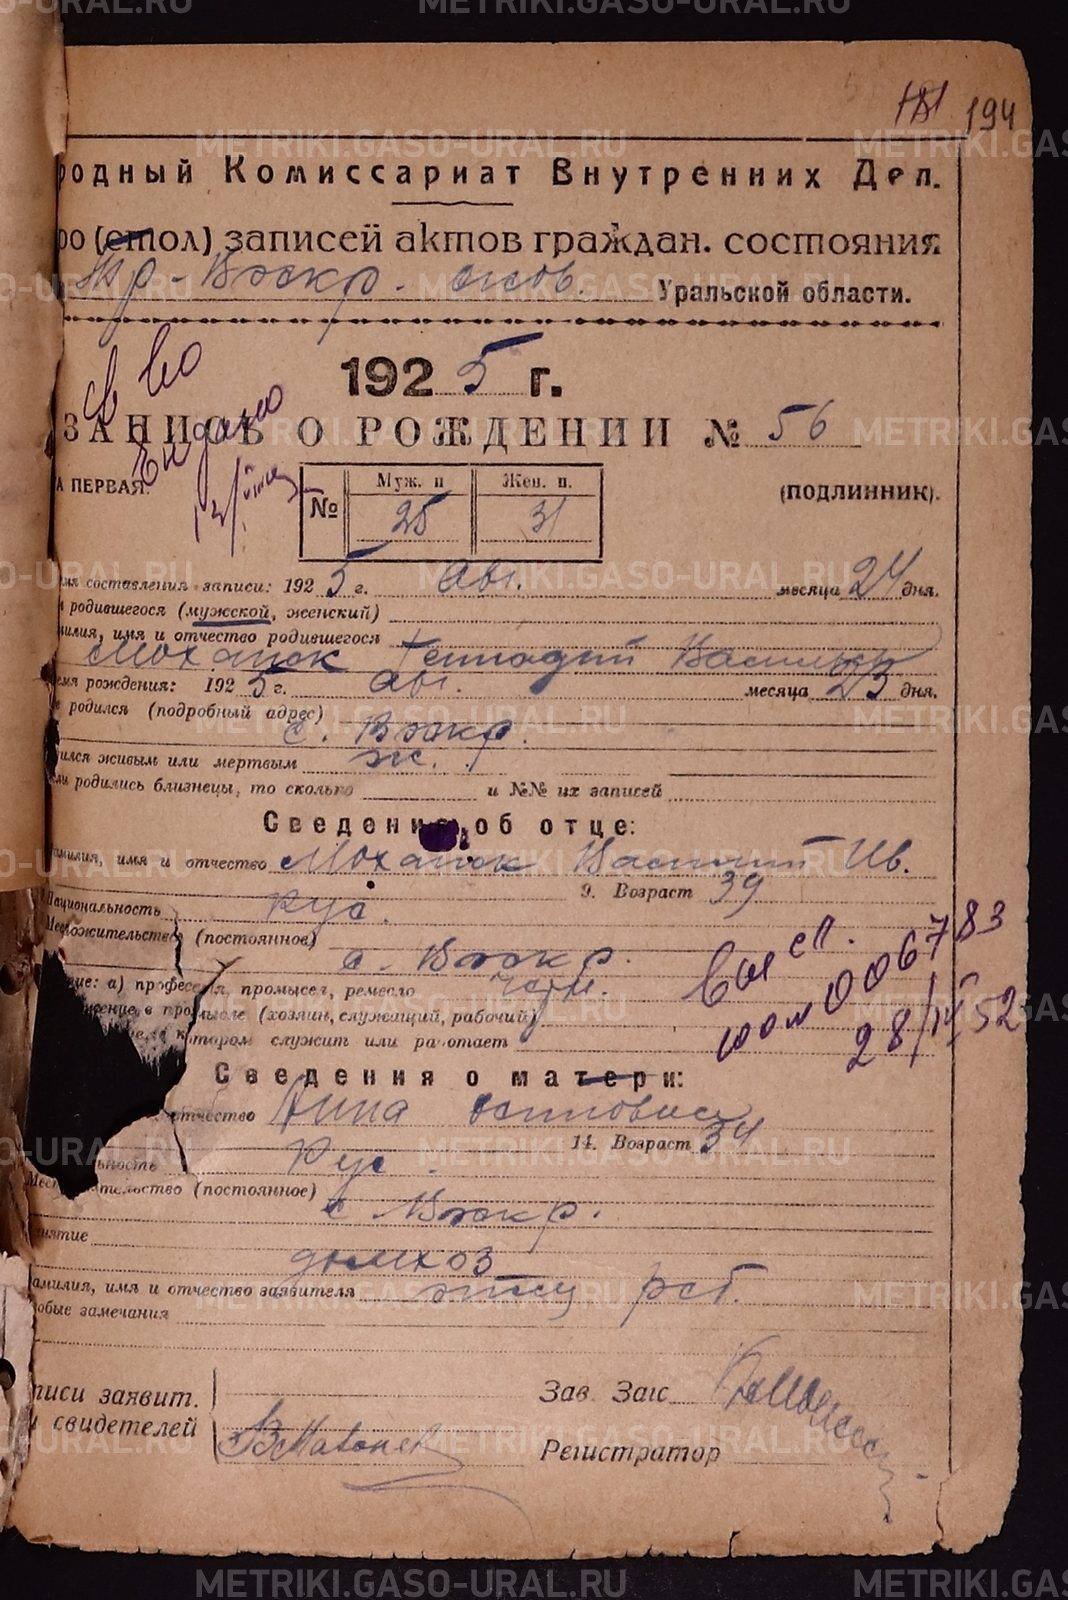 181 194
родный Комиссариат Внутренних Дел.
ро (стол) записей актов граждан. состояния
Уральской области.
1925 г.
ЗАПИСЬ О РОЖДЕНИИ № 56
А ПЕРВАЯ.
(подлинник).
№ Муж. п Жен. п.
25 31
мя составления записи: 1925 г. Авг. месяца 24 дня.
л родившегося (мужской, женский)
милия, имя и отчество родившегося
Геннадий
емя рождения: 1925 г. авг. месяца 23 дня.
е родился (подробный адрес)
с. Вскр.
ился живым или мертвым ж.
ли родились близнецы, то сколько и №№ их записей
Сведения об отце:
амилия, имя и отчество Василий Ив.
9. Возраст 39
Национальность Рус.
Местожительство (постоянное)
с. Вскр.
тие: а) профессия, промысел, ремесло
жение в промысле (хозяин, служащий, рабочий)
котором служит или работает
Сведения о матери:
отчество Анна
14. Возраст 34
льность Рус.
Местожительство (постоянное)
с. Вскр.
нятие
домхоз
амилия, имя и отчество заявителя отец реб.
обые замечания
писи заявит.
и свидетелей
Зав. Загс
Регистратор
св во
выдано
006783
28/IV 52
METRIKI.GASO-URAL.RU